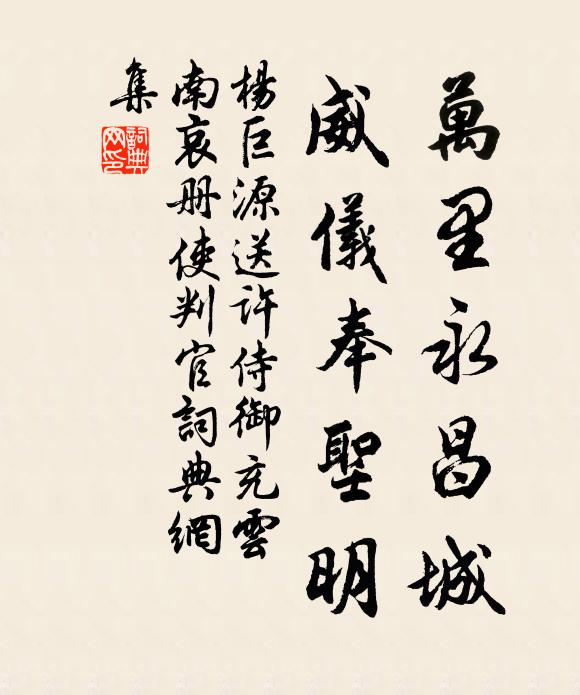 萬里永昌城
威儀奉聖明
楊巨源送許侍御充雲
南哀册使判官詞典網
集
詞典網印